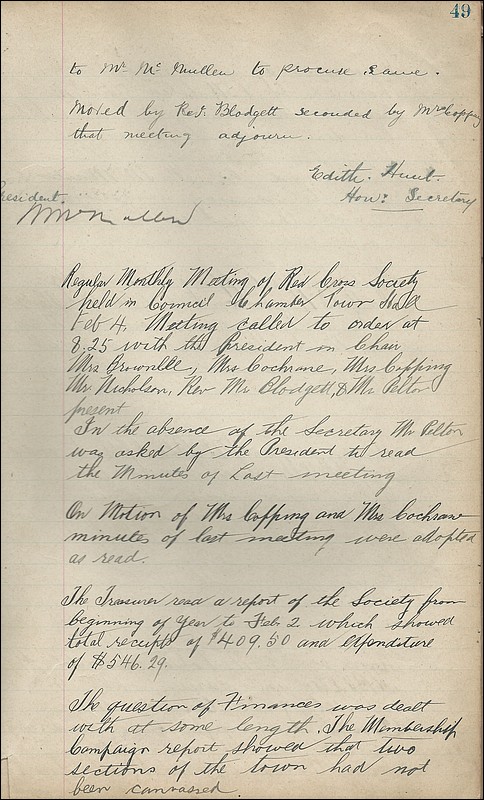 49
to Mr. Mc Mullen to procure same.
Moved by Rev. Blodgett seconded by Mrs Copping
that meeting adjourn.
Edith. Hunt.
Hon: Secretary
President.
Regular Monthly Meeting of Red Cross Society
held in Council Chamber Town Hall
Feb 4. Meeting called to order at
8.25 with the President in Chair
Mrs Brownlee, Mrs Cochrane, Mrs Copping
Mr. Nicholson, Rev Mr Blodgett, & Mr Pelton
present
In the absence of the Secretary Mr Pelton
was asked by the President to read
the Minutes of Last meeting
On Motion of Mrs Copping and Mrs Cochrane
minutes of last meeting were adopted
as read.
The Treasurer read a report of the Society from
beginning of year to Feb. 2 which showed
total receipts of $409.50 and expenditure
of $546.29.
The question of Finances was dealt
with at some length. The Membership
Campaign report showed that two
sections of the town had not
been canvassed.